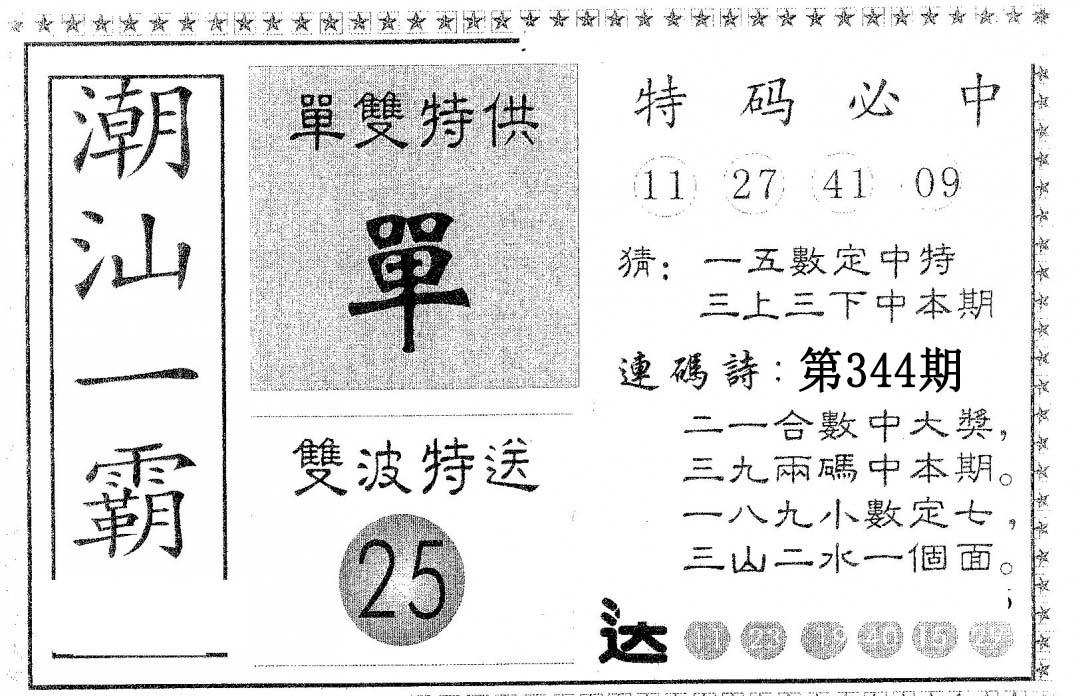 潮汕一霸
單雙特供
單
雙波特送
25
特码必中
11 27 41 09
猜：一五數定中特
三上三下中本期
連碼詩：第344期
二一合數中大獎，
三九兩碼中本期。
一八九小數定七，
三山二水一個面。
送 11 23 19 40 15